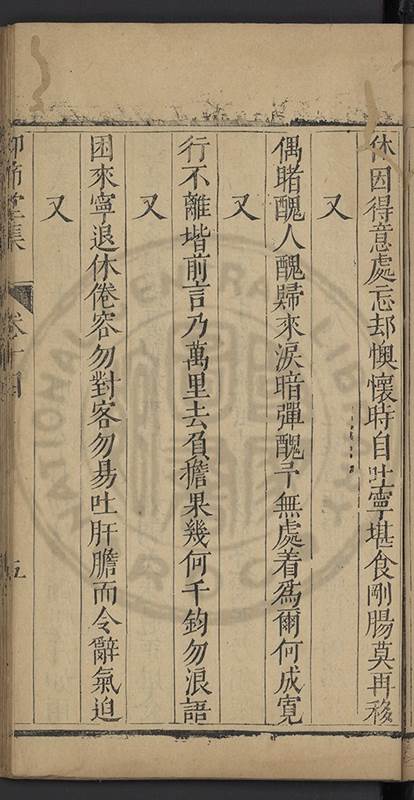 休因得意處忘却懊懷時自吐寧堪食剛腸莫再移
又
偶睹醜人醜歸來淚暗彈醜予無處着為爾何成寬
又
行不離堦前言乃萬里去負擔果幾何千鈞勿浪語
又
困來寧退休倦容勿對客勿易吐肝膽而令辭氣迫
又
卷十四
五
NATIONAL CENTRAL LIBRARY